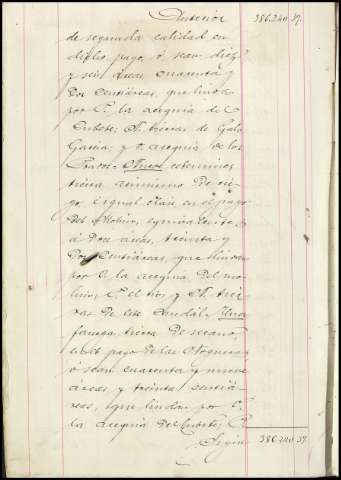 Anterior 386.240 37.
de segunda calidad en
dicho pago, ó sean diez
y seis áreas, cuarenta y
dos centiáreas, que linda
por P. la acequia del
Cubete; N. tierras de Gala
Garcia y O. acequia de los
Otra celemines
tierra asimismo de rie-
go, é igual clase en el pago
del Molino, equivalentes
á doce areas, treinta y
dos centiáreas, que lindan
por O. la acequia del mo-
lino, P. el rio, y N. tier-
ras de este caudal. Una
fanega tierra de secano,
en el pago de las
ó sean cuarenta y nueve
áreas y treinta centiá-
reas, que linda por O.
la acequia del Cubete; P.
Sigue 386.240 37.